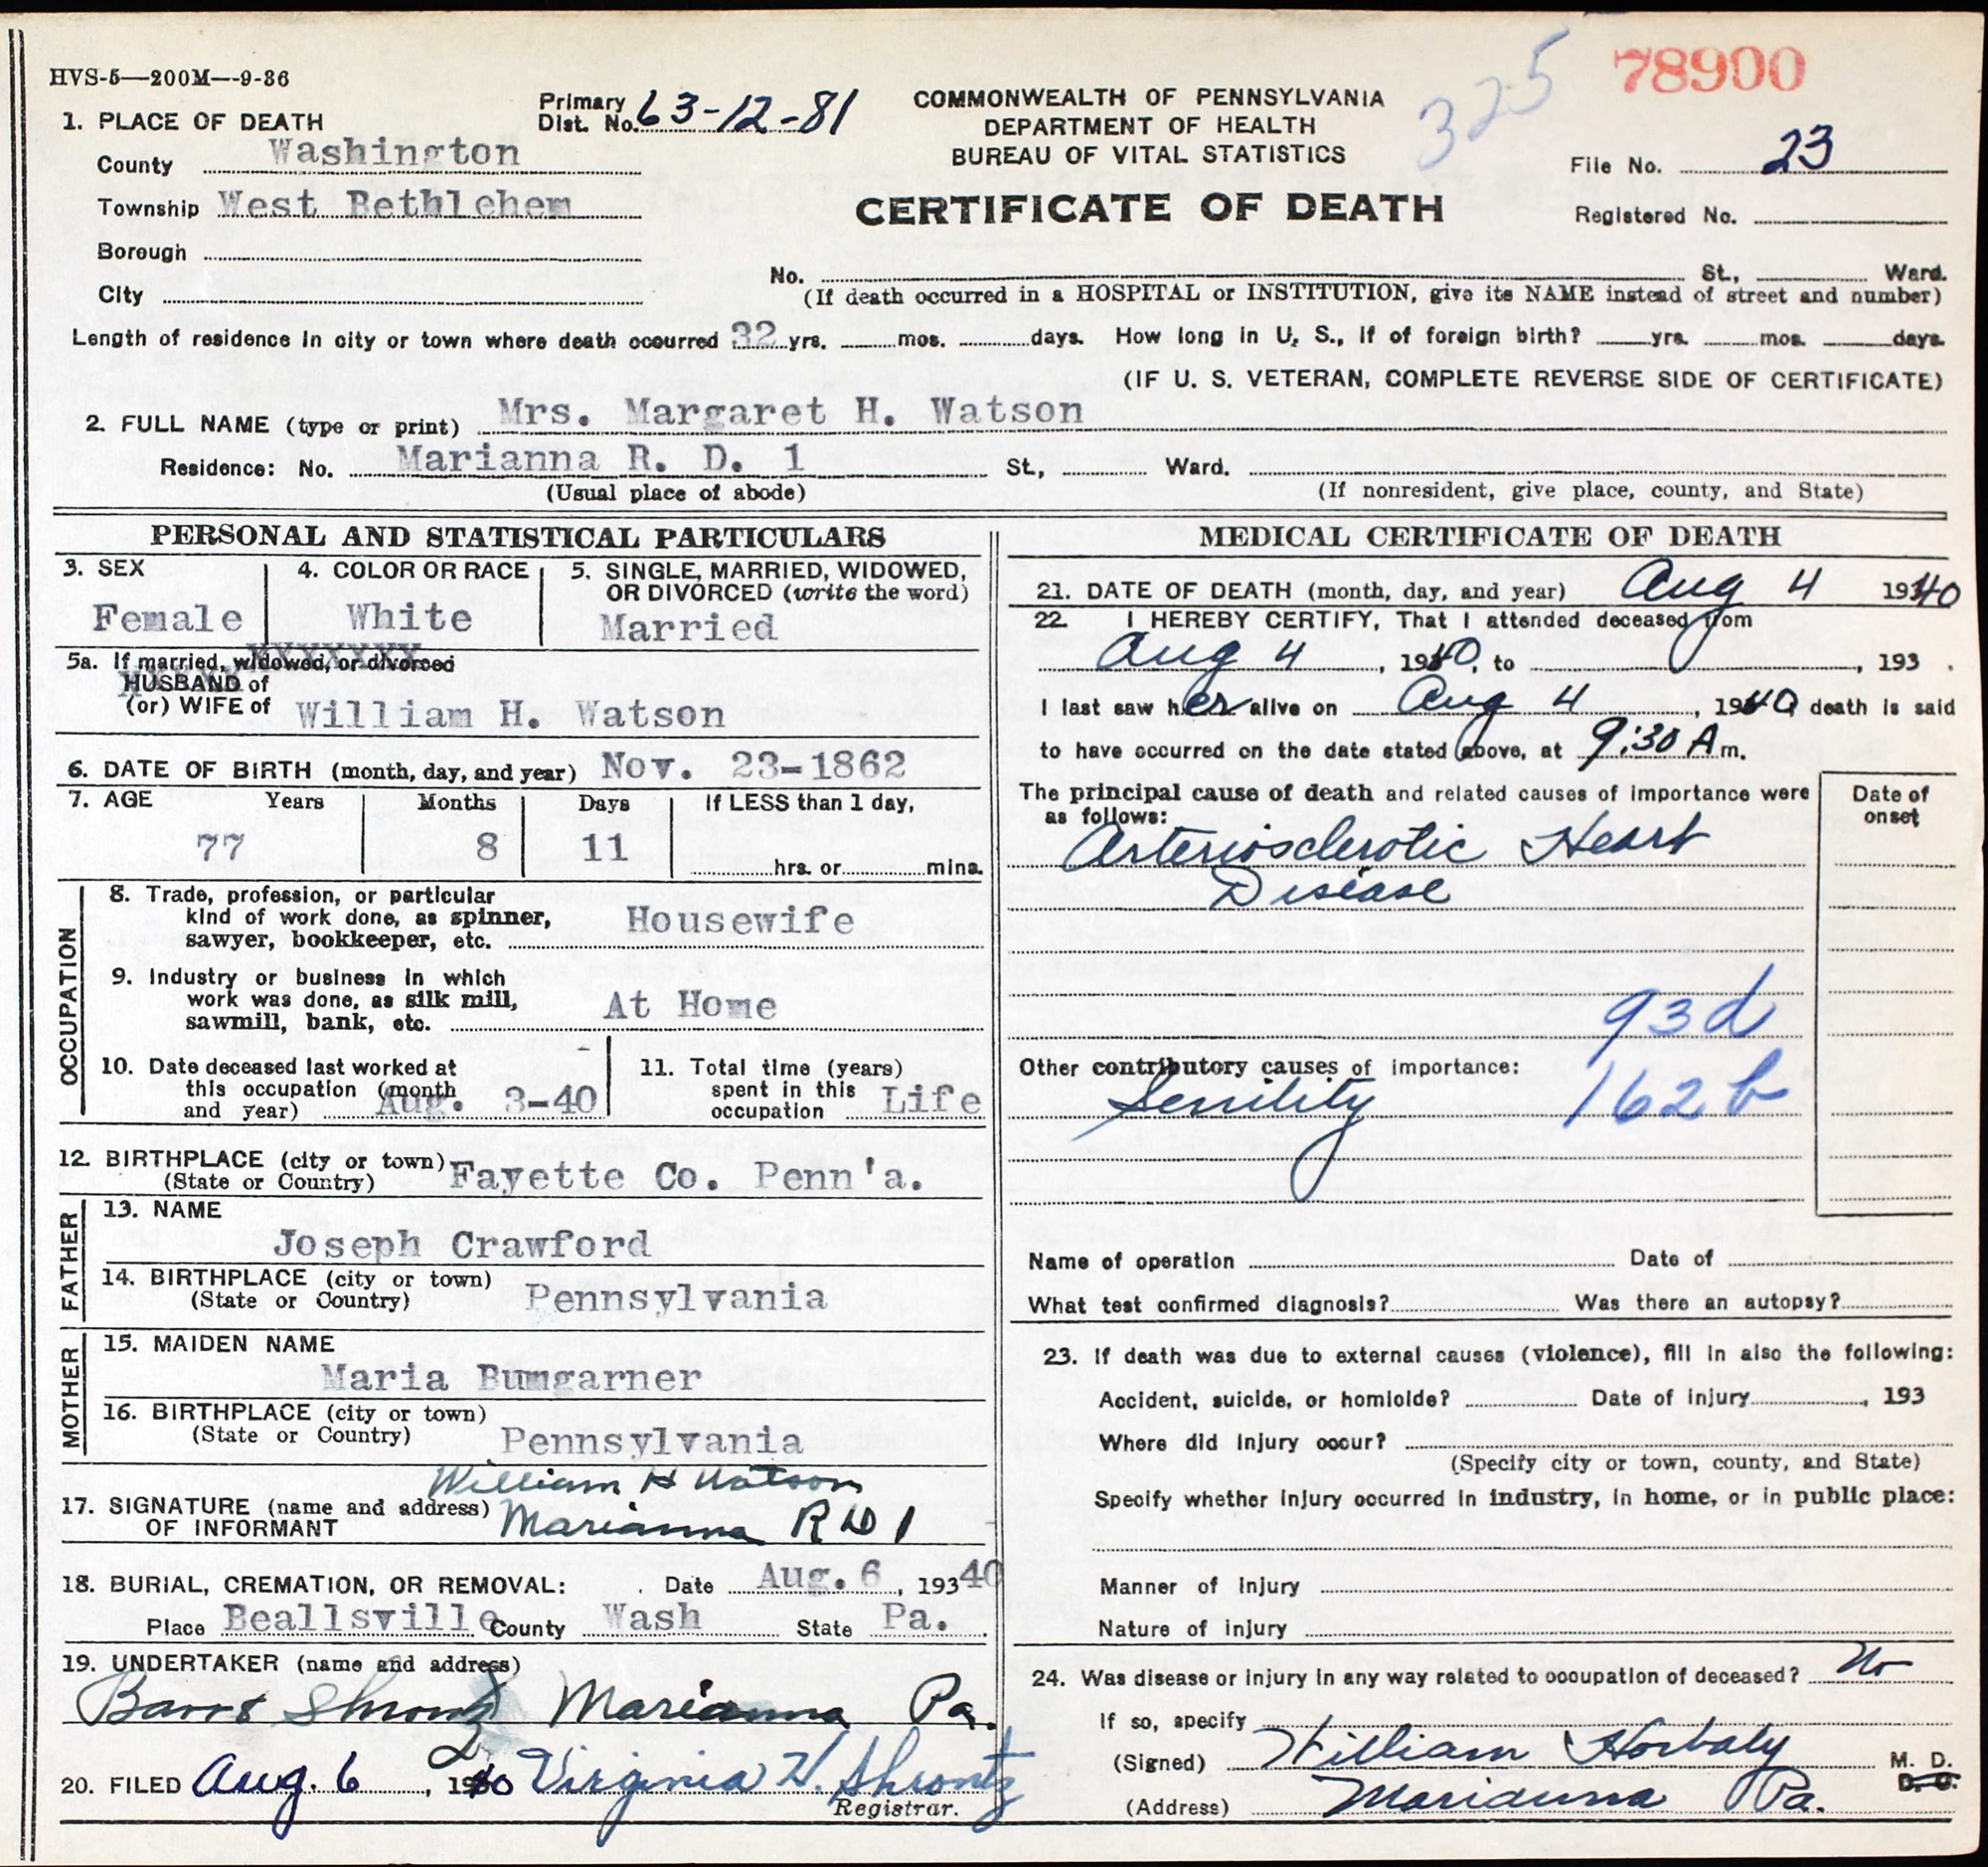 HVS-5—200M—9-36
325
78900
COMMONWEALTH OF PENNSYLVANIA
DEPARTMENT OF HEALTH
BUREAU OF VITAL STATISTICS
CERTIFICATE OF DEATH
Primary Dist. No. 63-12-81
File No. 23
Registered No.
1. PLACE OF DEATH
County Washington
Township West Bethlehem
Borough
City
No. St., Ward.
(If death occurred in a HOSPITAL or INSTITUTION, give its NAME instead of street and number)
Length of residence in city or town where death occurred 32 yrs. mos. days. How long in U. S., if of foreign birth? yrs. mos. days.
(IF U. S. VETERAN, COMPLETE REVERSE SIDE OF CERTIFICATE)
2. FULL NAME (type or print) Mrs. Margaret H. Watson
Residence: No. Marianna R. D. 1 St., Ward.
(Usual place of abode) (If nonresident, give place, county, and State)
PERSONAL AND STATISTICAL PARTICULARS
3. SEX
Female
4. COLOR OR RACE
White
5. SINGLE, MARRIED, WIDOWED,
OR DIVORCED (write the word)
Married
5a. If married, widowed, or divorced
HUSBAND of
(or) WIFE of William H. Watson
6. DATE OF BIRTH (month, day, and year) Nov. 23-1862
7. AGE Years Months Days If LESS than 1 day,
77 8 11 hrs. or mins.
OCCUPATION
8. Trade, profession, or particular
kind of work done, as spinner,
sawyer, bookkeeper, etc. Housewife
9. Industry or business in which
work was done, as silk mill,
sawmill, bank, etc. At Home
10. Date deceased last worked at
this occupation (month
and year) Aug. 3-40
11. Total time (years)
spent in this
occupation Life
12. BIRTHPLACE (city or town)
(State or Country) Fayette Co. Penn'a.
FATHER
13. NAME
Joseph Crawford
14. BIRTHPLACE (city or town)
(State or Country) Pennsylvania
MOTHER
15. MAIDEN NAME
Maria Bumgarner
16. BIRTHPLACE (city or town)
(State or Country) Pennsylvania
William H Watson
17. SIGNATURE (name and address)
OF INFORMANT Marianna R D 1
18. BURIAL, CREMATION, OR REMOVAL: Date Aug. 6, 19340
Place Beallsville County Wash State Pa.
19. UNDERTAKER (name and address)
Marianna Pa.
20. FILED Aug. 6, 1940 Virginia H. Shrontz
Registrar.
MEDICAL CERTIFICATE OF DEATH
21. DATE OF DEATH (month, day, and year) Aug 4 1940
22 I HEREBY CERTIFY, That I attended deceased from
Aug 4, 1940, to , 193 .
I last saw her alive on Aug 4, 1940, death is said
to have occurred on the date stated above, at 9:30 A m.
The principal cause of death and related causes of importance were
as follows:
Date of
onset
Arteriosclerotic Heart
Disease
93d
Other contributory causes of importance:
Senility 162b
Name of operation Date of
What test confirmed diagnosis? Was there an autopsy?
23. If death was due to external causes (violence), fill in also the following:
Accident, suicide, or homicide? Date of injury , 193
Where did injury occur?
(Specify city or town, county, and State)
Specify whether injury occurred in industry, in home, or in public place:
Manner of injury
Nature of injury
24. Was disease or injury in any way related to occupation of deceased? No
If so, specify
(Signed) William Horbaly M. D.
D. O.
(Address) Marianna Pa.